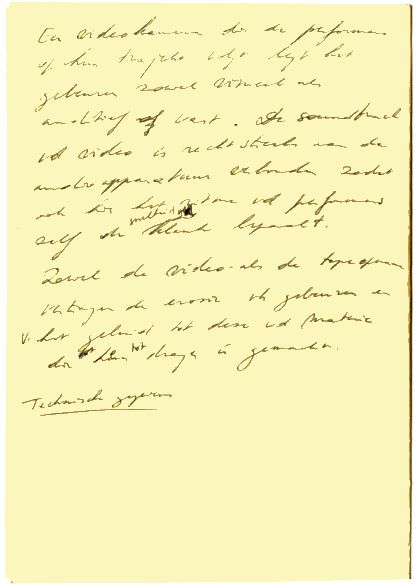 Een videokamera die de performers
op hun trajekt volgt legt het
gebeuren zowel visueel als
auditief vast. De soundtrack
vd video is rechtstreeks van de
audioapparatuur verbonden zodat
ook hier het vd performers
zelf de klank bepaalt.
Zowel de video- als de tapeopnamen
de erosie vh gebeuren en
v. het geluid tot deze vd materie
die tot hun drager is gemaakt.
Technische gegevens